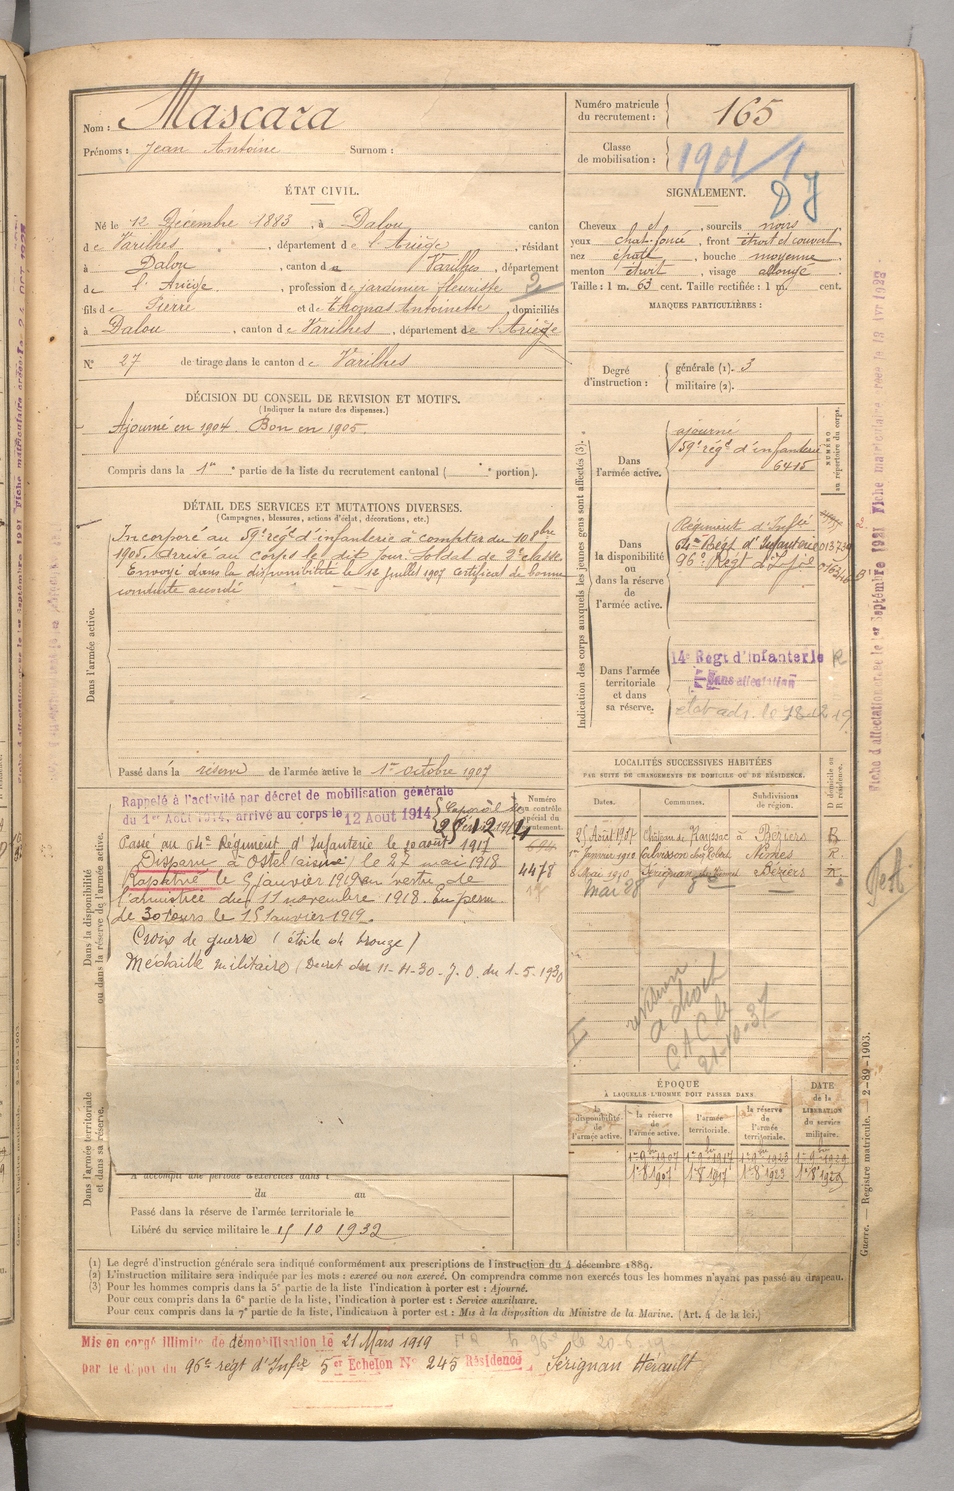 Nom : Mascara
Prénoms : Jean Antoine Surnom :
Numéro matricule du recrutement : 165
Classe de mobilisation : 1901
DJ
ÉTAT CIVIL.
Né le 12 Décembre 1883, à Dalou canton
de Varilhes, département de l'Ariège, résidant
à Dalou, canton de Varilhes, département
de l'Ariège, profession de jardinier fleuriste
fils de Pierre et de Thomas Antoinette, domiciliés
à Dalou, canton de Varilhes, département de l'Ariège
N° 27 de tirage dans le canton de Varilhes
SIGNALEMENT.
Cheveux et, sourcils noirs
yeux chat. foncé, front étroit et couvert
nez épaté, bouche moyenne
menton étroit, visage allongé
Taille : 1 m. 63 cent. Taille rectifiée : 1 m. cent.
MARQUES PARTICULIÈRES :
Degré d'instruction : générale (1). 3
militaire (2).
DÉCISION DU CONSEIL DE REVISION ET MOTIFS.
(Indiquer la nature des dispenses.)
Ajourné en 1904. Bon en 1905.
Compris dans la 1re partie de la liste du recrutement cantonal ( e portion).
DÉTAIL DES SERVICES ET MUTATIONS DIVERSES.
(Campagnes, blessures, actions d'éclat, décorations, etc.)
Dans l'armée active.
Incorporé au 59e régt d'infanterie à compter du 10 8bre
1905. Arrivé au corps le dit jour. Soldat de 2e classe
Envoyé dans la disponibilité le 12 juillet 1907 Certificat de bonne
conduite accordé
Passé dans la réserve de l'armée active le 1er octobre 1907
Indication des corps auxquels les jeunes gens sont affectés (3).
NUMÉRO au répertoire du corps.
Dans l'armée active.
ajourné
59e régt d'infanterie
6415
Dans la disponibilité ou dans la réserve de l'armée active.
Régiment d'Infie
96e Régt d'Infie
Dans l'armée territoriale et dans sa réserve.
14e Régt d'Infanterie
Sans affectation
LOCALITÉS SUCCESSIVES HABITÉES
PAR SUITE DE CHANGEMENTS DE DOMICILE OU DE RÉSIDENCE.
Dates. Communes. Subdivisions de région. D domicile ou R résidence.
25 Août 1907 Béziers R
Janvier 1910 Nîmes R
8 Mai 1910 Sérignan Béziers R
mai 28
Dans la disponibilité ou dans la réserve de l'armée active.
Rappelé à l'activité par décret de mobilisation générale
du 1er Août 1914, arrivé au corps le 12 Août 1914
Caporal le
Numéro au contrôle spécial du recrutement.
4478
Passé au Régiment d'Infanterie le 10 août 1917
Disparu à Ostel (aisne) le 27 mai 1918
Rapatrié le 5 janvier 1919 en vertu de
l'armistice du 11 novembre 1918. En perm.
de 30 jours le 15 Janvier 1919.
Croix de guerre (étoile de bronze)
Médaille militaire (Décret du 11-4-30. J.O. du 1-5-1930
revision
21-10-37
Dans l'armée territoriale et dans sa réserve.
A accompli une période d'exercices dans l
du au
Passé dans la réserve de l'armée territoriale le
Libéré du service militaire le 15 10 1932
ÉPOQUE
À LAQUELLE L'HOMME DOIT PASSER DANS
la disponibilité de l'armée active. la réserve de l'armée active. l'armée territoriale. la réserve de l'armée territoriale.
DATE de la LIBÉRATION du service militaire.
(1) Le degré d'instruction générale sera indiqué conformément aux prescriptions de l'instruction du 4 décembre 1889.
(2) L'instruction militaire sera indiquée par les mots : exercé ou non exercé. On comprendra comme non exercés tous les hommes n'ayant pas passé au drapeau.
(3) Pour les hommes compris dans la 5e partie de la liste l'indication à porter est : Ajourné.
Pour ceux compris dans la 6e partie de la liste, l'indication à porter est : Service auxiliaire.
Pour ceux compris dans la 7e partie de la liste, l'indication à porter est : Mis à la disposition du Ministre de la Marine. (Art. 4 de la loi.)
Mis en congé illimité de démobilisation le 21 Mars 1919
par le dépôt du 96e régt d'Infie 5er Echelon No 245 Résidence Sérignan Hérault
Guerre. — Registre matricule. — 2-89-1903.